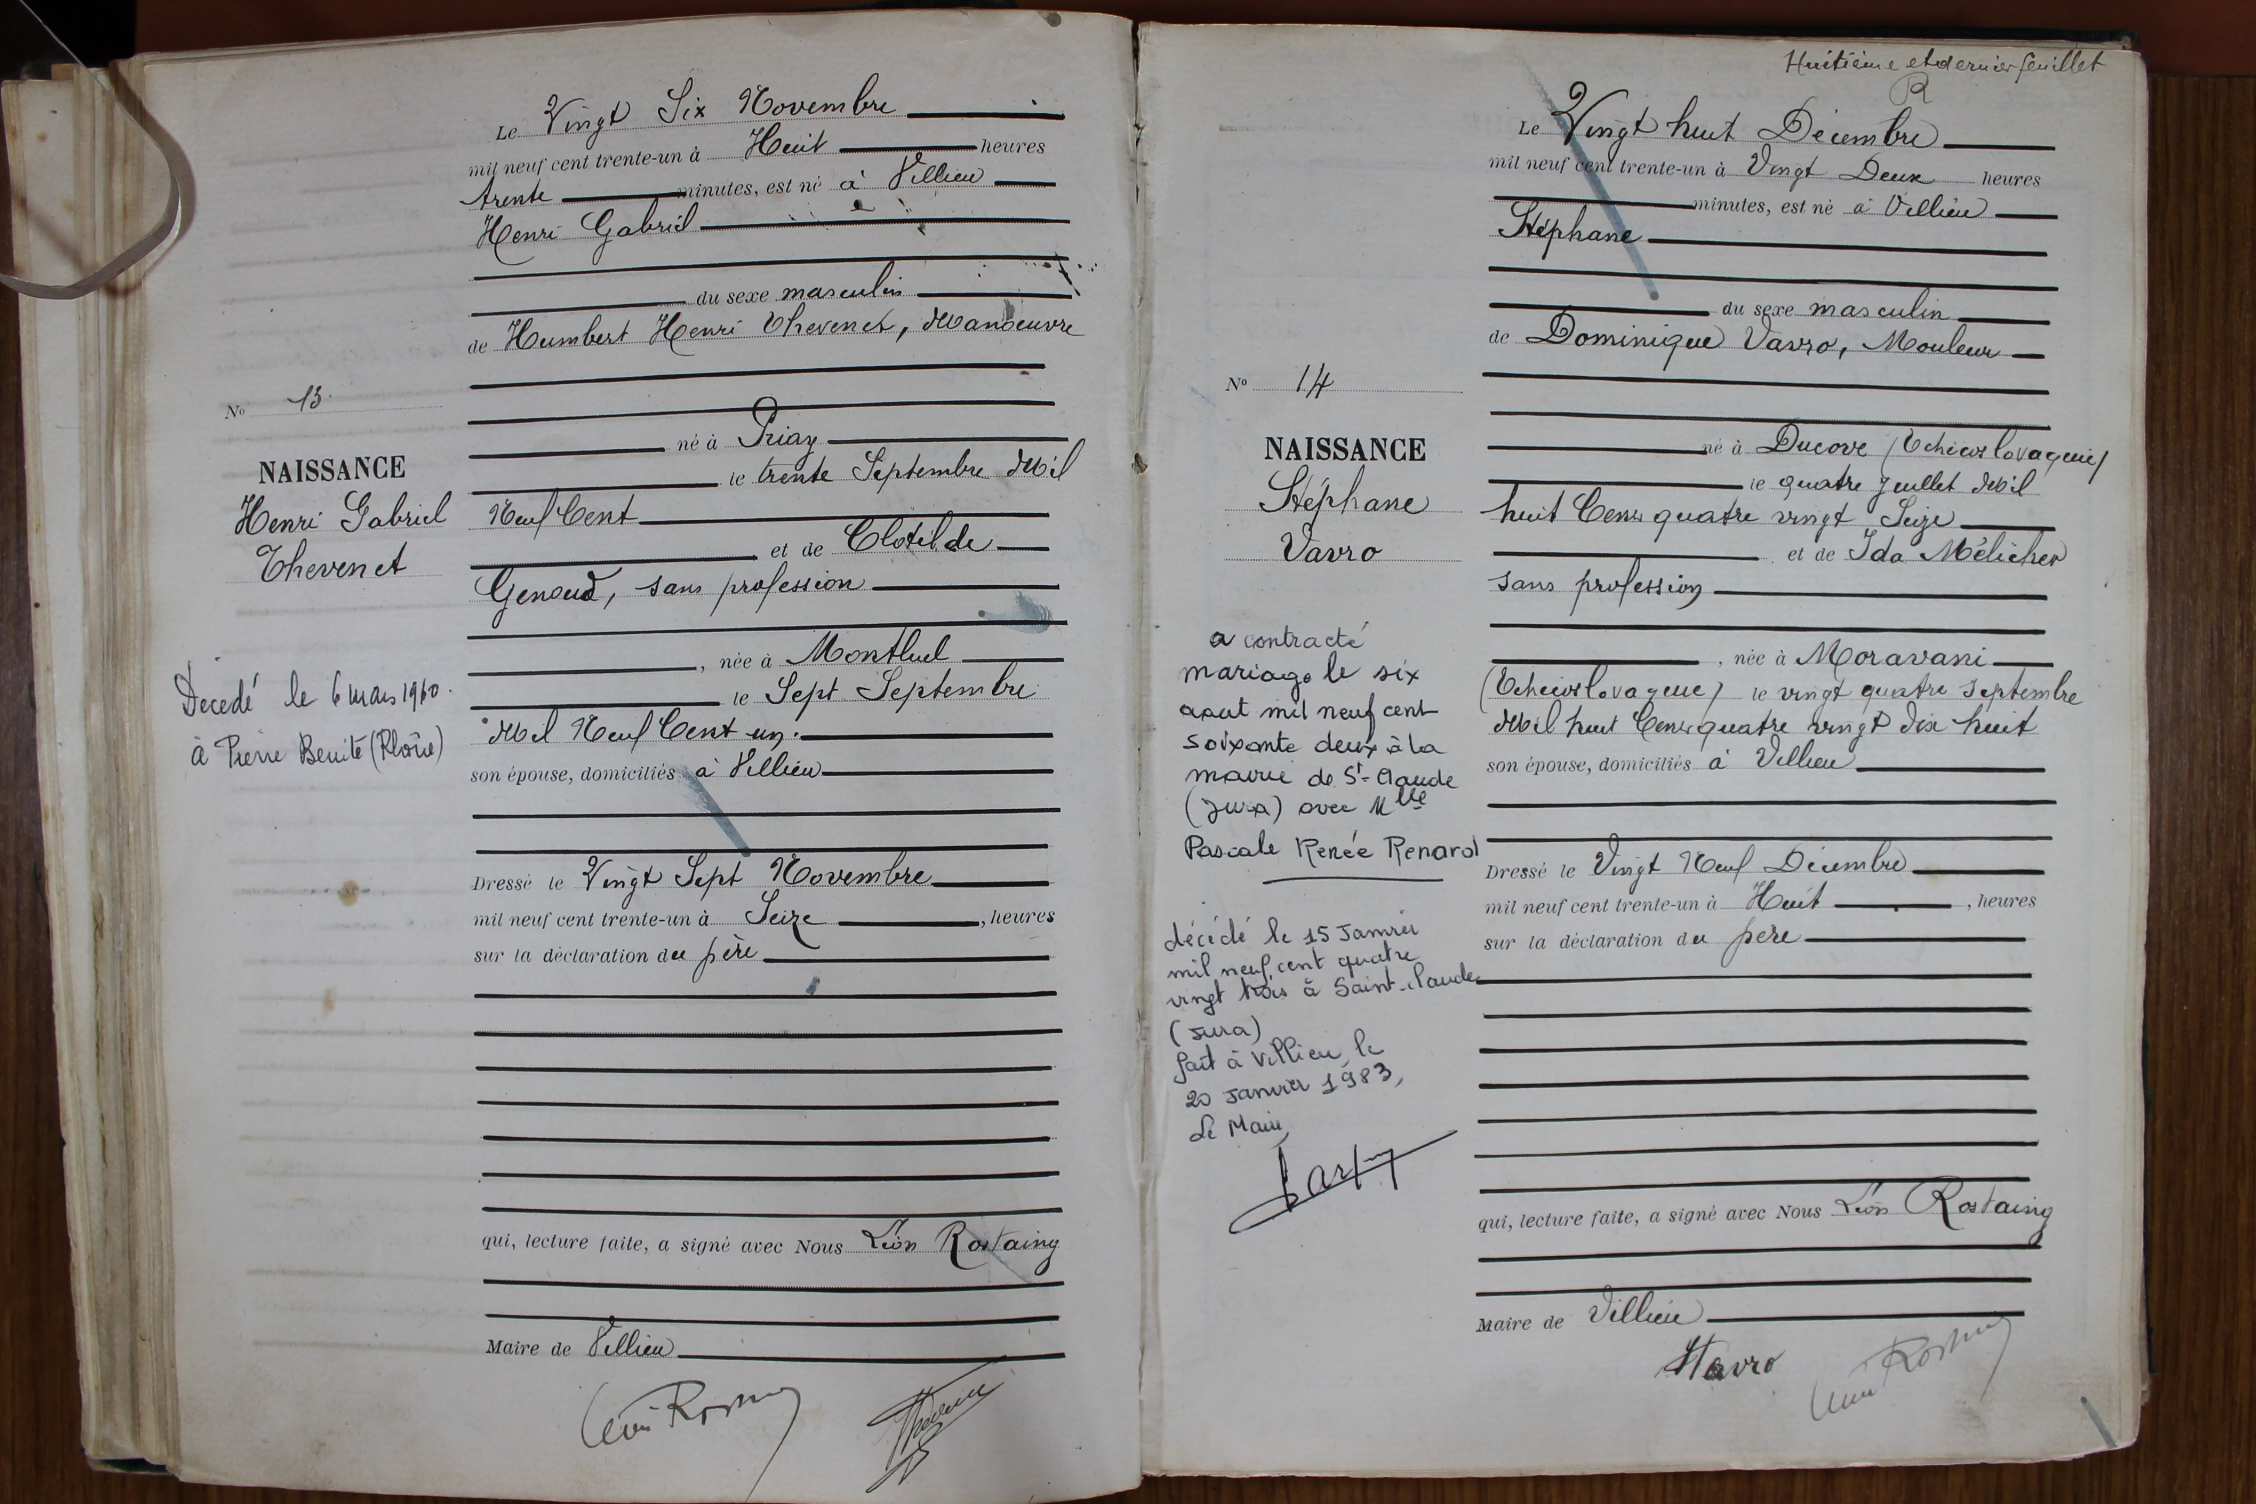 Le Vingt Six Novembre
mil neuf cent trente-un à Huit heures
trente minutes, est né à Villieu
Henri Gabriel
du sexe masculin
de Humbert Henri Thevenet, Manoeuvre
né à Priay
le trente Septembre Mil
Neuf Cent
et de Clotilde
Genoud, sans profession
, née à Montluel
le Sept Septembre
Mil Neuf Cent un.
son épouse, domiciliés à Villieu
Dressé le Vingt Sept Novembre
mil neuf cent trente-un à Seize , heures
sur la déclaration du père
qui, lecture faite, a signé avec Nous Léon Rostaing
Maire de Villieu
No 13
NAISSANCE
Henri Gabriel
Thevenet
Décedé le 6 mars 1960.
à Pierre Benite (Rhône)
Huitième et dernier feuillet
R
Le Vingt huit Décembre
mil neuf cent trente-un à Vingt Deux heures
minutes, est né à Villieu
Stéphane
du sexe masculin
de Dominique Vavro, Mouleur
né à Ducove (Tchécoslovaquie)
le quatre Juillet Mil
huit Cent quatre vingt Seize
et de Ida Mélicher
sans profession
, née à Moravani
(Tchécoslovaquie) le vingt quatre Septembre
Mil huit Cent quatre vingt dix huit
son épouse, domiciliés à Villieu
Dressé le Vingt Neuf Décembre
mil neuf cent trente-un à Huit , heures
sur la déclaration du père
qui, lecture faite, a signé avec Nous Léon Rostaing
Maire de Villieu
Vavro
No 14
NAISSANCE
Stéphane
Vavro
a contracté
mariage le six
aout mil neuf cent
soixante deux à la
mairie de St-Claude
(Jura) avec Mlle
Pascale Renée Renard
décédé le 15 Janvier
mil neuf cent quatre
vingt trois à Saint-Claude
(Jura)
fait à Villieu, le
20 Janvier 1983,
Le Maire,